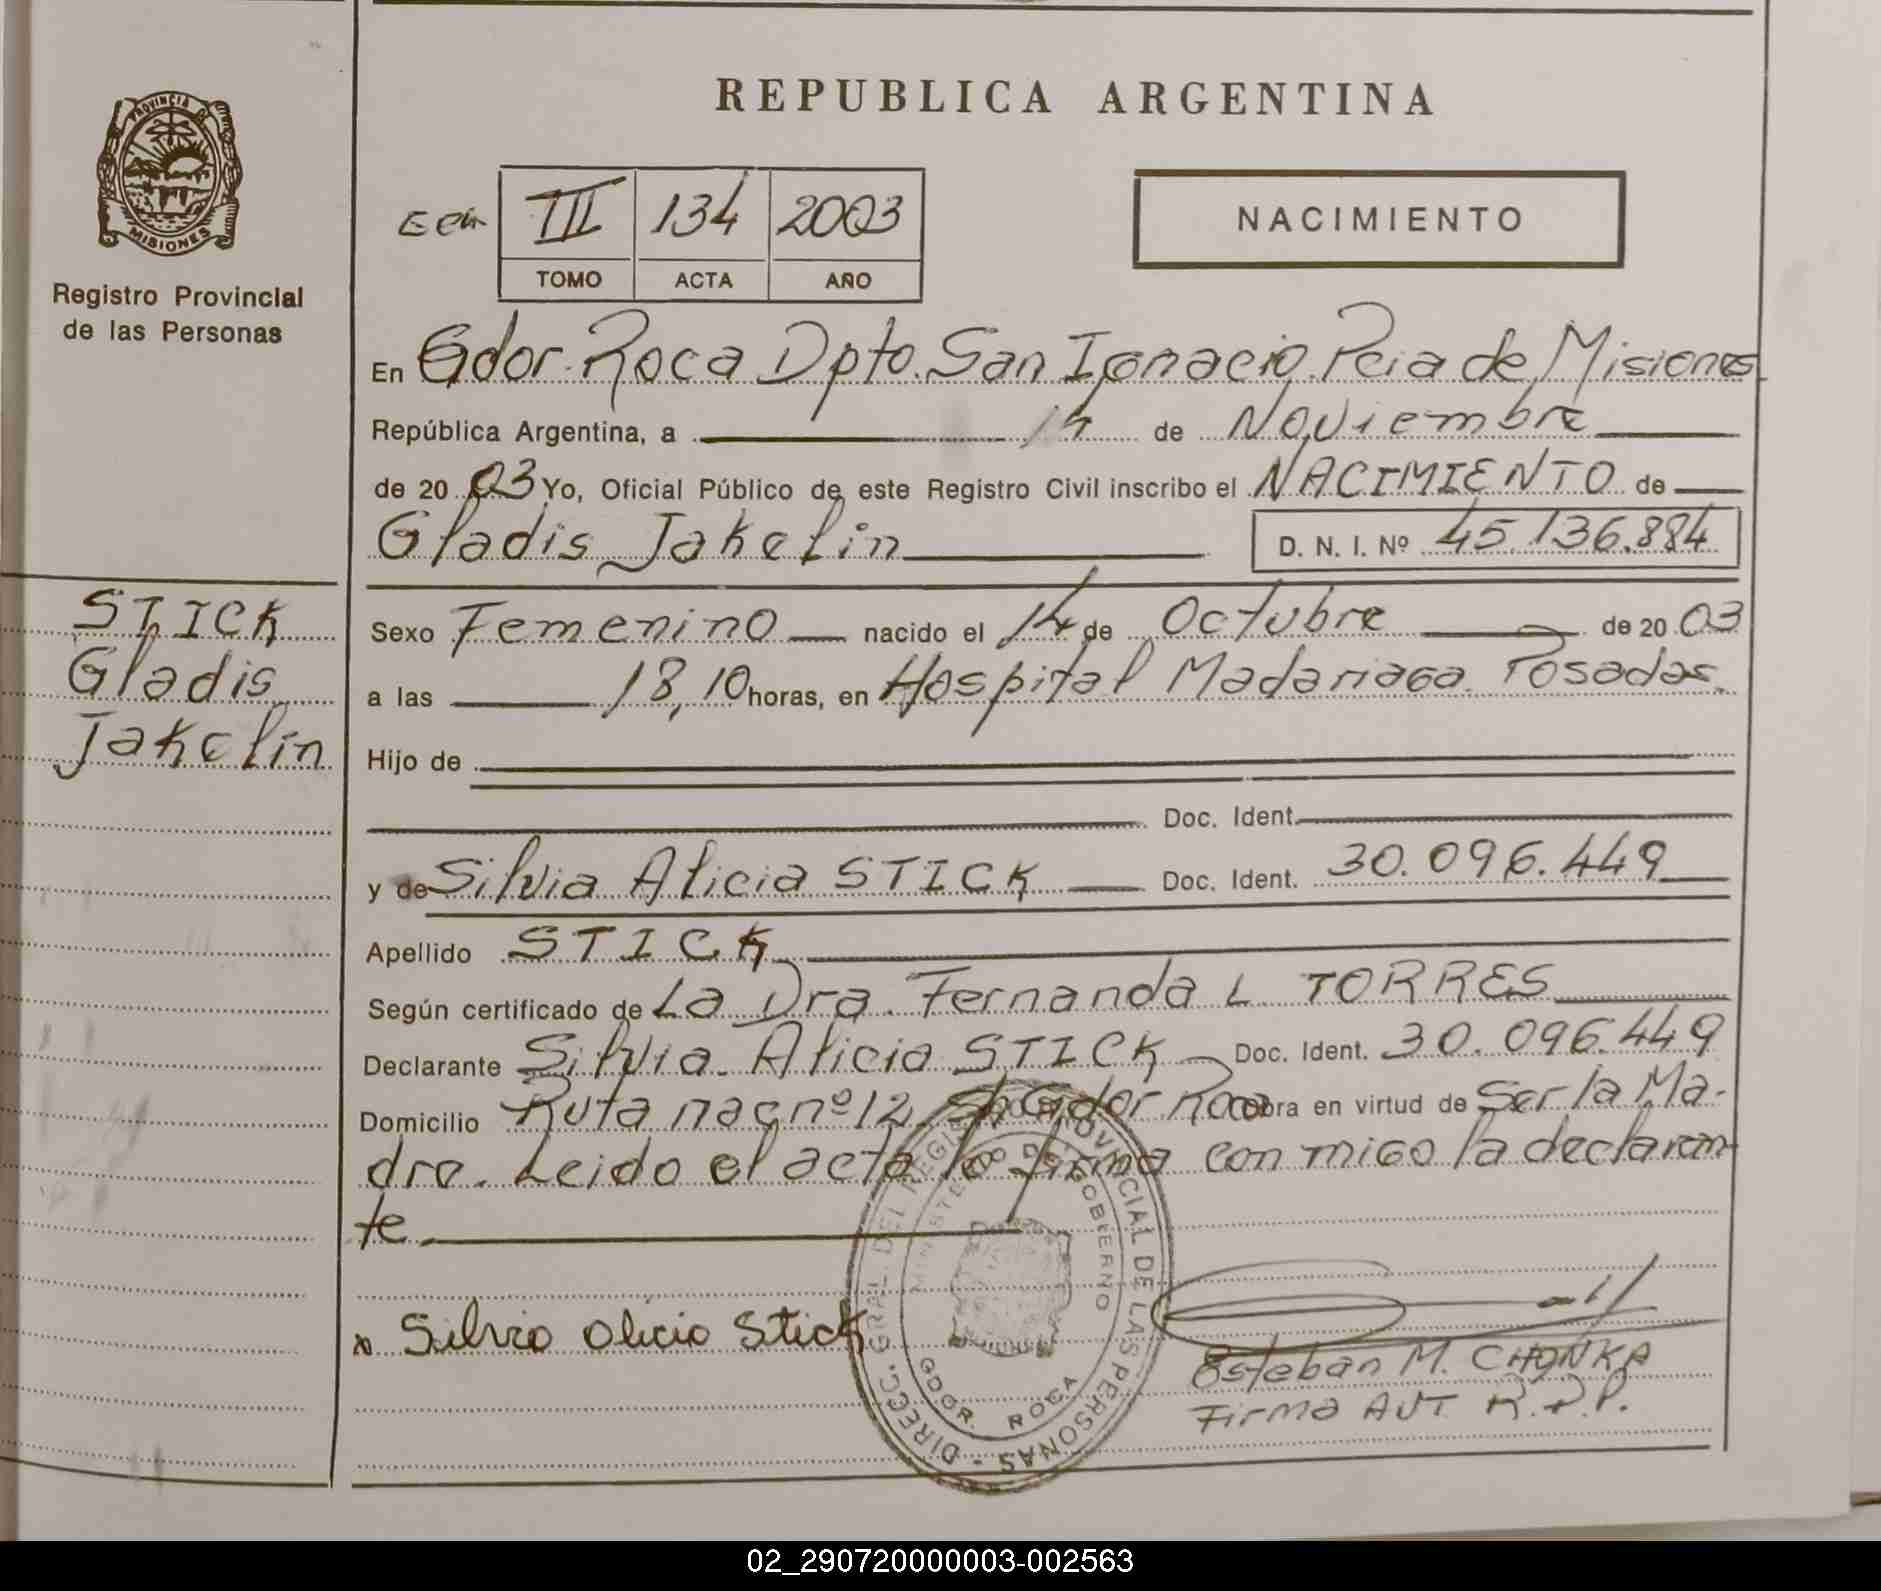 REPUBLICA ARGENTINA
PROVINCIA DE
MISIONES
Registro Provincial
de las Personas
III 134 2003
TOMO ACTA AÑO
NACIMIENTO
En Gdor. Roca Dpto. San Ignacio Pcia de Misiones
República Argentina, a 14 de Noviembre
de 2003 Yo, Oficial Público de este Registro Civil inscribo el NACIMIENTO de
Gladis Jakelin D. N. I. Nº 45.136.884
STICK
Gladis
Jakelin
Sexo Femenino nacido el 14 de Octubre de 2003
a las 18,10 horas, en Hospital Madariaga. Posadas.
Hijo de
Doc. Ident.
y de Silvia Alicia STICK Doc. Ident. 30.096.449
Apellido STICK
Según certificado de La Dra. Fernanda L TORRES
Declarante Silvia Alicia STICK Doc. Ident. 30.096.449
Domicilio Ruta nac nº 12 Gdor. Roca Obra en virtud de Ser la Ma-
dre. Leido el acta la firma con migo la declaran-
te
x Silvia alicia Stick
DIRECC. GRAL. DEL REGISTRO PROVINCIAL DE LAS PERSONAS -
MINISTERIO DE GOBIERNO
GDOR. ROCA
Esteban M. CHONKA
Firma AUT. R.P.P.
02_290720000003-002563